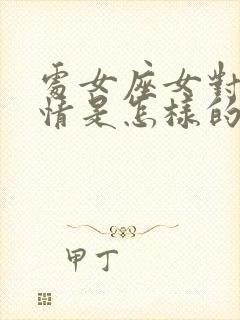 處女座女對
情是怎樣的
甲丁